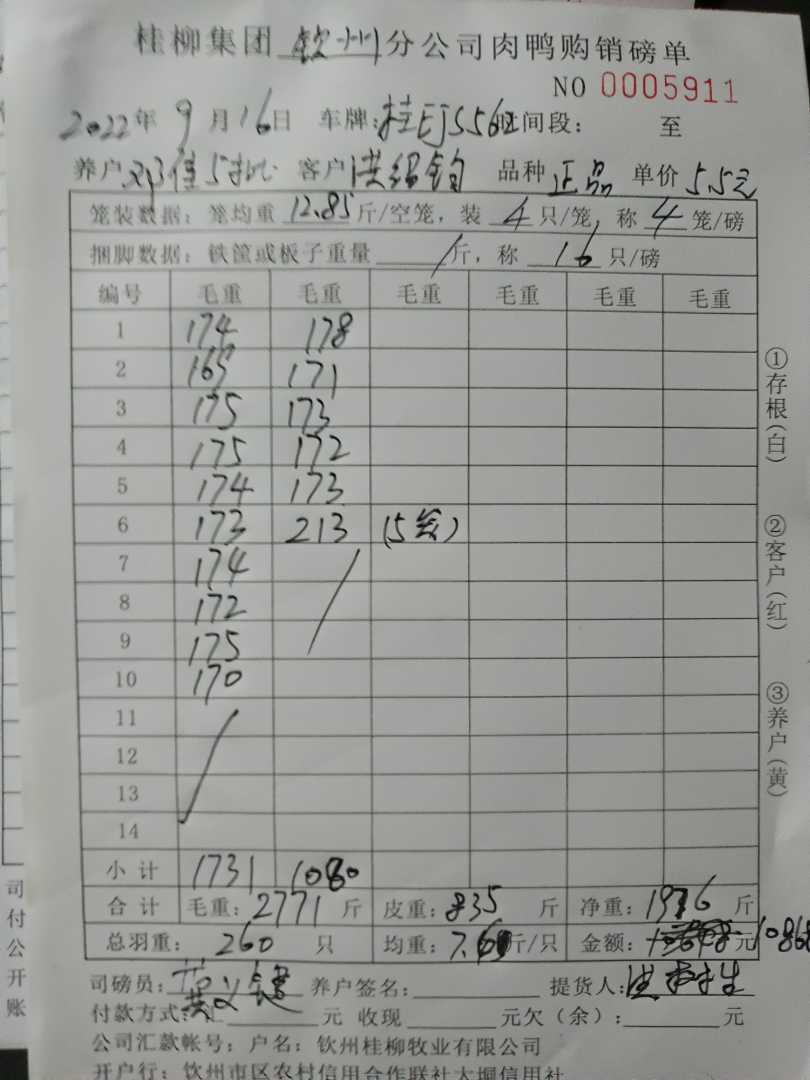 桂柳集团 钦州 分公司肉鸭购销磅单
NO 0005911
2022年 9 月 16日 车牌:桂EJ556 间段: 至
养户 客户 洪绍钧 品种 正品 单价 5.5元
笼装数据: 笼均重 12.85 斤/空笼, 装 4 只/笼, 称 4 笼/磅
捆脚数据: 铁筐或板子重量 / 斤, 称 16 只/磅
编号 毛重 毛重 毛重 毛重 毛重 毛重
1 174 178
2 169 171
3 175 173
4 175 172
5 174 173
6 173 213 (5笼)
7 174
8 172
9 175
10 170
11
12
13
14
小计 1731 1080
合计 毛重: 2771 斤 皮重: 835 斤 净重: 1976 斤
总羽重: 260 只 均重: 7.60斤/只 金额: 元 10868
司磅员: 养户签名: 提货人:
付款方式: 汇 元 收现 元欠(余): 元
公司汇款帐号: 户名: 钦州桂柳牧业有限公司
开户行: 钦州市区农村信用合作联社大垌信用社
①存根(白)
②客户(红)
③养户(黄)
司
付
公
开
账